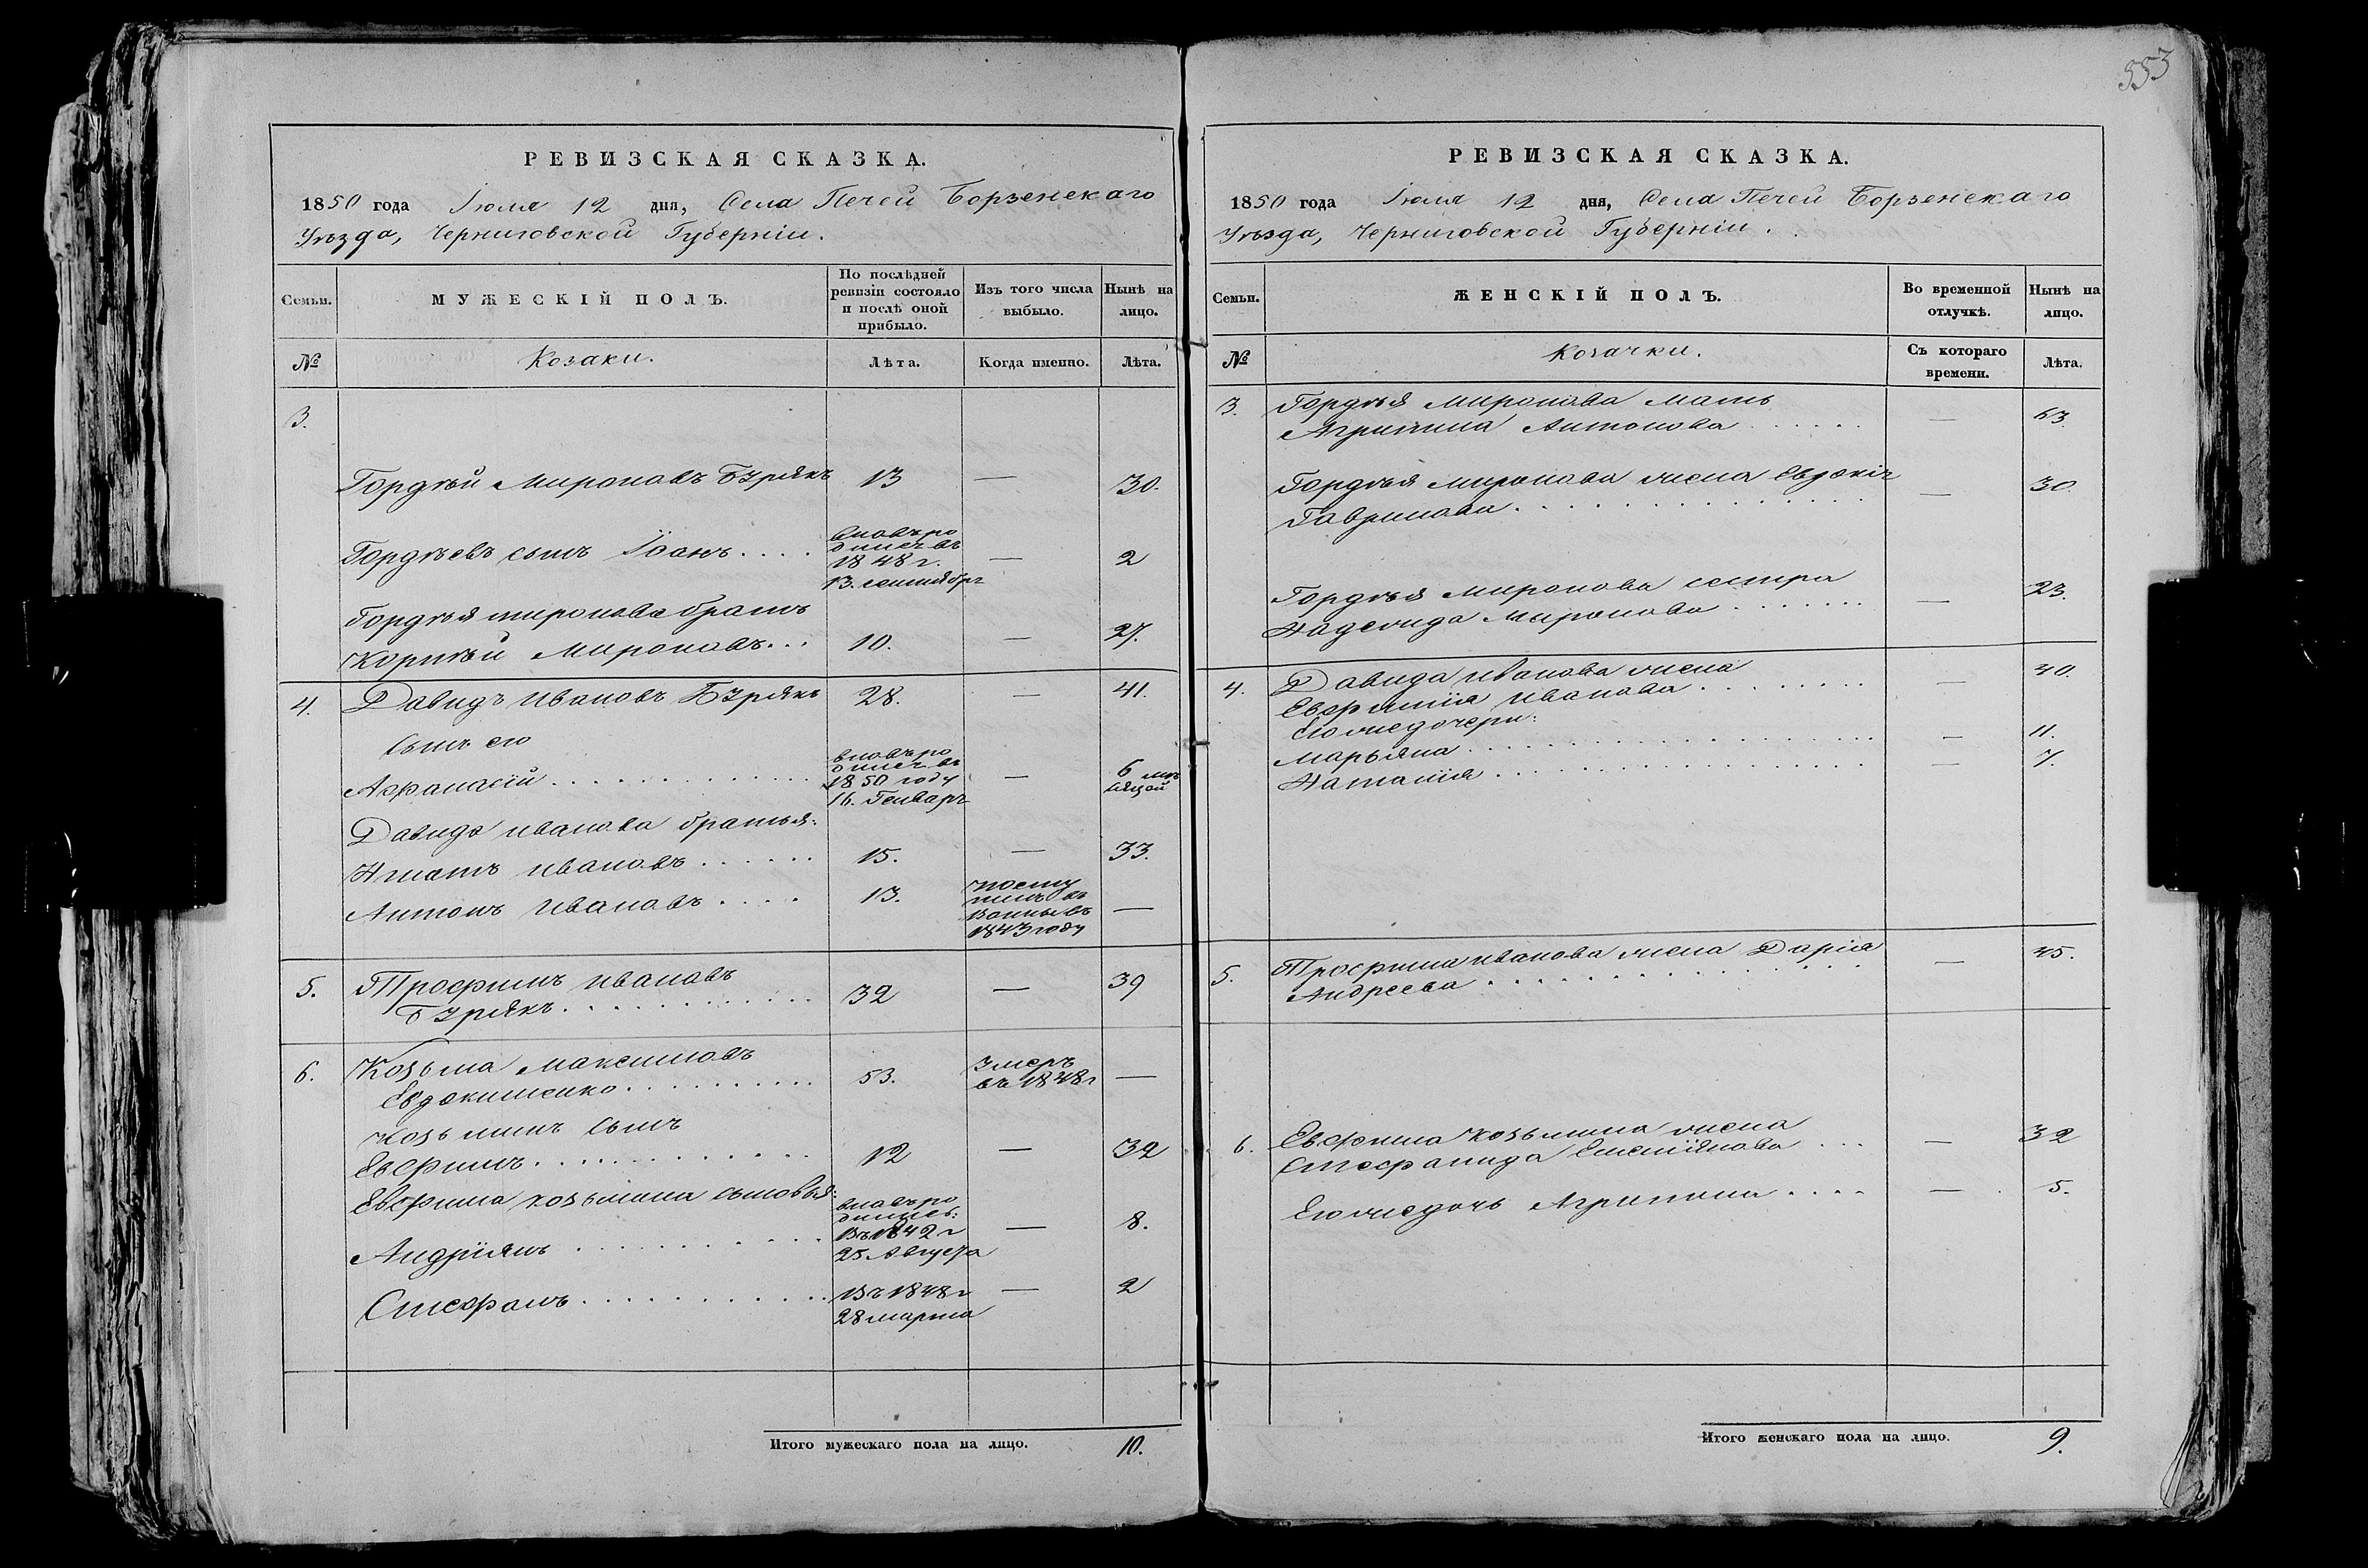 РЕВИЗСКАЯ СКАЗКА.
1850 года Іюля 12 дня, Села Печей Борзенскаго
Уѣзда, Черниговской Губерніи.
Семьи.
МУЖЕСКІЙ ПОЛЪ.
По послѣдней
ревизіи состояло
и послѣ оной
прибыло.
Изъ того числа
выбыло.
Нынѣ на
лицо.
№
Козаки.
Лѣта.
Когда именно.
Лѣта.
3.
Гордѣй Мироновъ Бурякъ 13 — 30.
Гордѣевъ сынъ Іоанъ....
вновь ро
дился въ
1848 г.
13. сентября
— 2
Гордѣя миронова братъ
Корнѣй Мироновъ... 10. — 27.
4. Давидъ Ивановъ Бурякъ 28. — 41.
Сынъ его
Афанасій
вновь ро
дился въ
1850 году
16. Генваря
— 6 мѣ
сяцей
Давида иванова братья:
Игнатъ ивановъ 15. — 33.
Антонъ Ивановъ 13.
посту
пилъ въ
1843 году
—
5. Трофимъ ивановъ
Бурякъ. 32 — 39
6. Козьма максимовъ
Евдокименко 53.
Умеръ
въ 1848 г
—
Козьминъ сынъ
Евфимъ. 12 — 32
Евфима козьмина сыновья:
Андріянъ
вновь ро
дились:
въ 1842 г
25 Августа
— 8.
Стефанъ.
Въ 1848 г
28 марта
— 2
Итого мужескаго пола на лицо. 10.
553
РЕВИЗСКАЯ СКАЗКА.
1850 года Іюля 12 дня, Села Печей Борзенскаго
Уѣзда, Черниговской Губерніи.
Семьи.
ЖЕНСКІЙ ПОЛЪ.
Во временной
отлучкѣ.
Нынѣ на
лицо.
№
Козачки.
Съ котораго
времени.
Лѣта.
3. Гордѣя миронова мать
Агрипина Антонова — 63.
Гордѣя миронова жена Евдокія
Гаврилова. — 30.
Гордѣя миронова сестра
Надежда Миронова — 23.
4. Давида Иванова жена
Евфимія Иванова — 40.
Его же дочери:
Марьяна — 11.
Наталія — 7.
5. Трофима иванова жена Дарія
Андреева — 45.
6. Евфима козьмина жена
Стефанида Емеліянова — 32
Его же дочь Агрипина.... — 5.
Итого женскаго пола на лицо. 9.